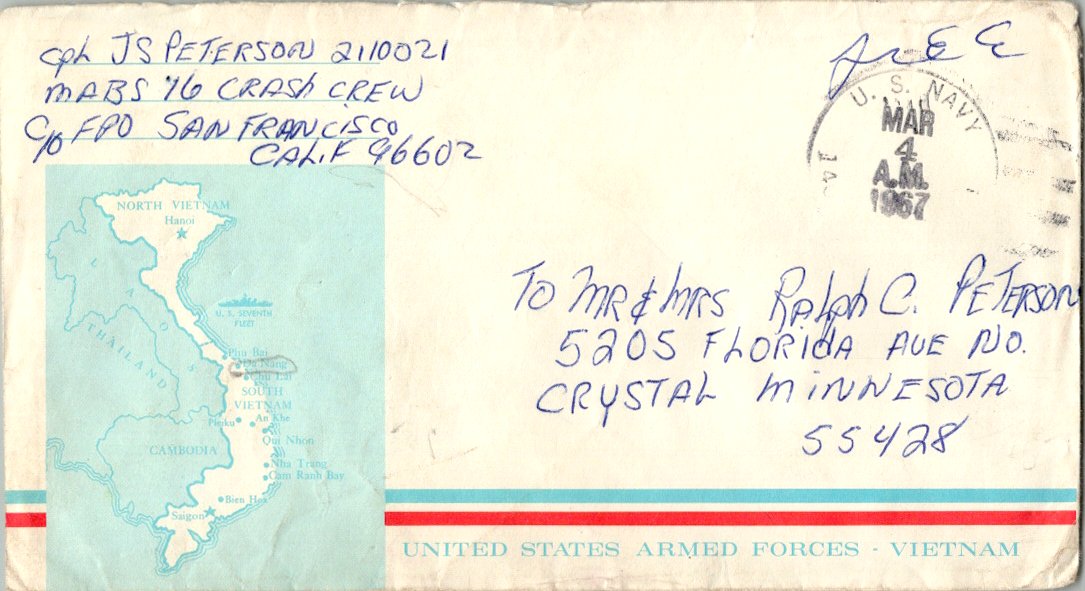 Cpl JS PETERSON 2110021
MABS 16 CRASH CREW
C/O FPO SAN FRANCISCO
CALIF 96602
FREE
U. S. NAVY
MAR
4
A.M.
1967
TO MR & MRS Ralph C. PETERSON
5205 FLORIDA AVE NO.
CRYSTAL MINNESOTA
55428
NORTH VIETNAM
Hanoi
LAOS
U. S. SEVENTH
FLEET
THAILAND
Phu Bai
Da Nang
Chu Lai
SOUTH
VIETNAM
An Khe
Pleiku
Qui Nhon
CAMBODIA
Nha Trang
Cam Ranh Bay
Bien Hoa
Saigon
UNITED STATES ARMED FORCES - VIETNAM